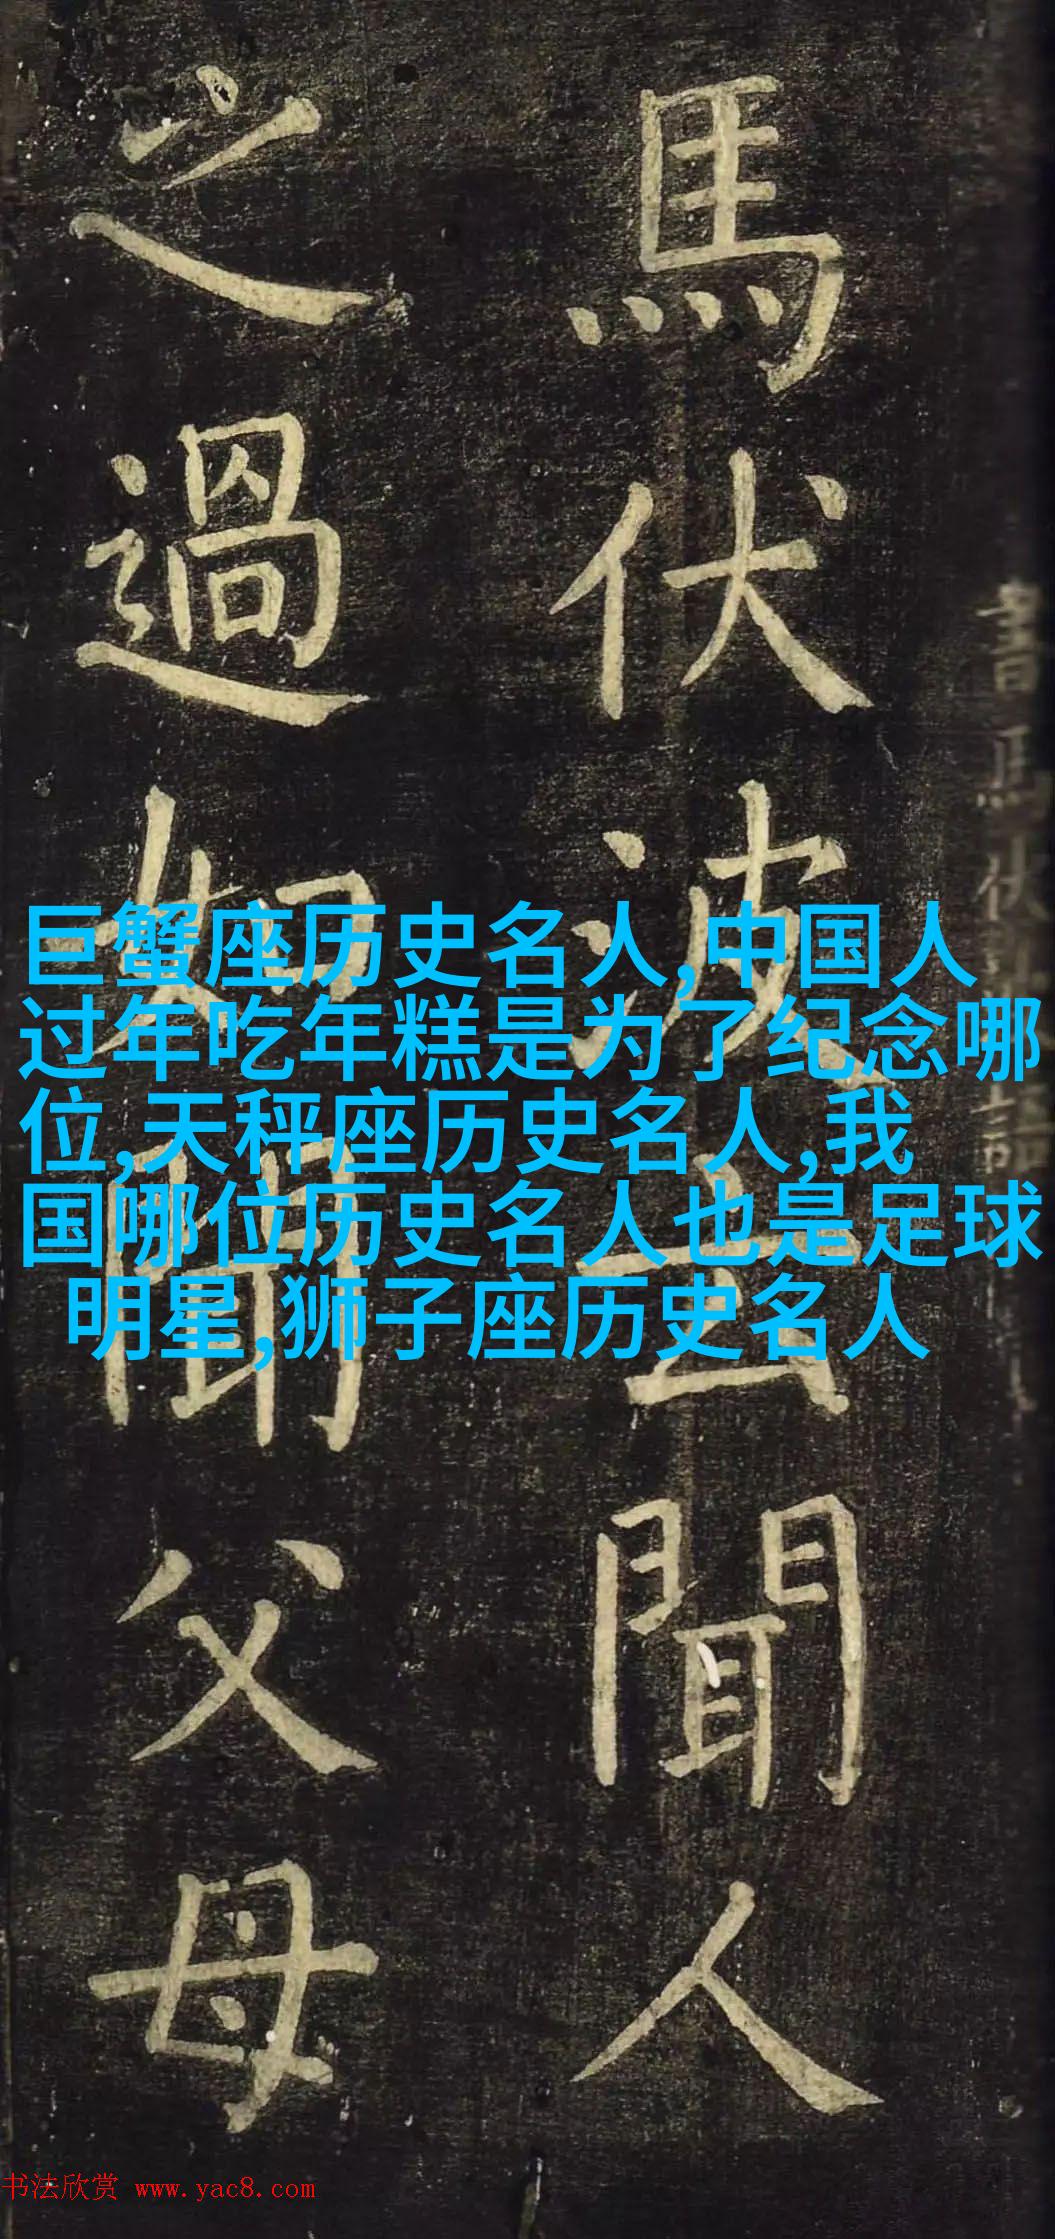 馬伏波云聞人
之過如聞父母
巨蟹座历史名人,中国人
过年吃年糕是为了纪念哪
位,天秤座历史名人,我
国哪位历史名人也是足球
明星,狮子座历史名人
书法欣赏 www.yac8.com